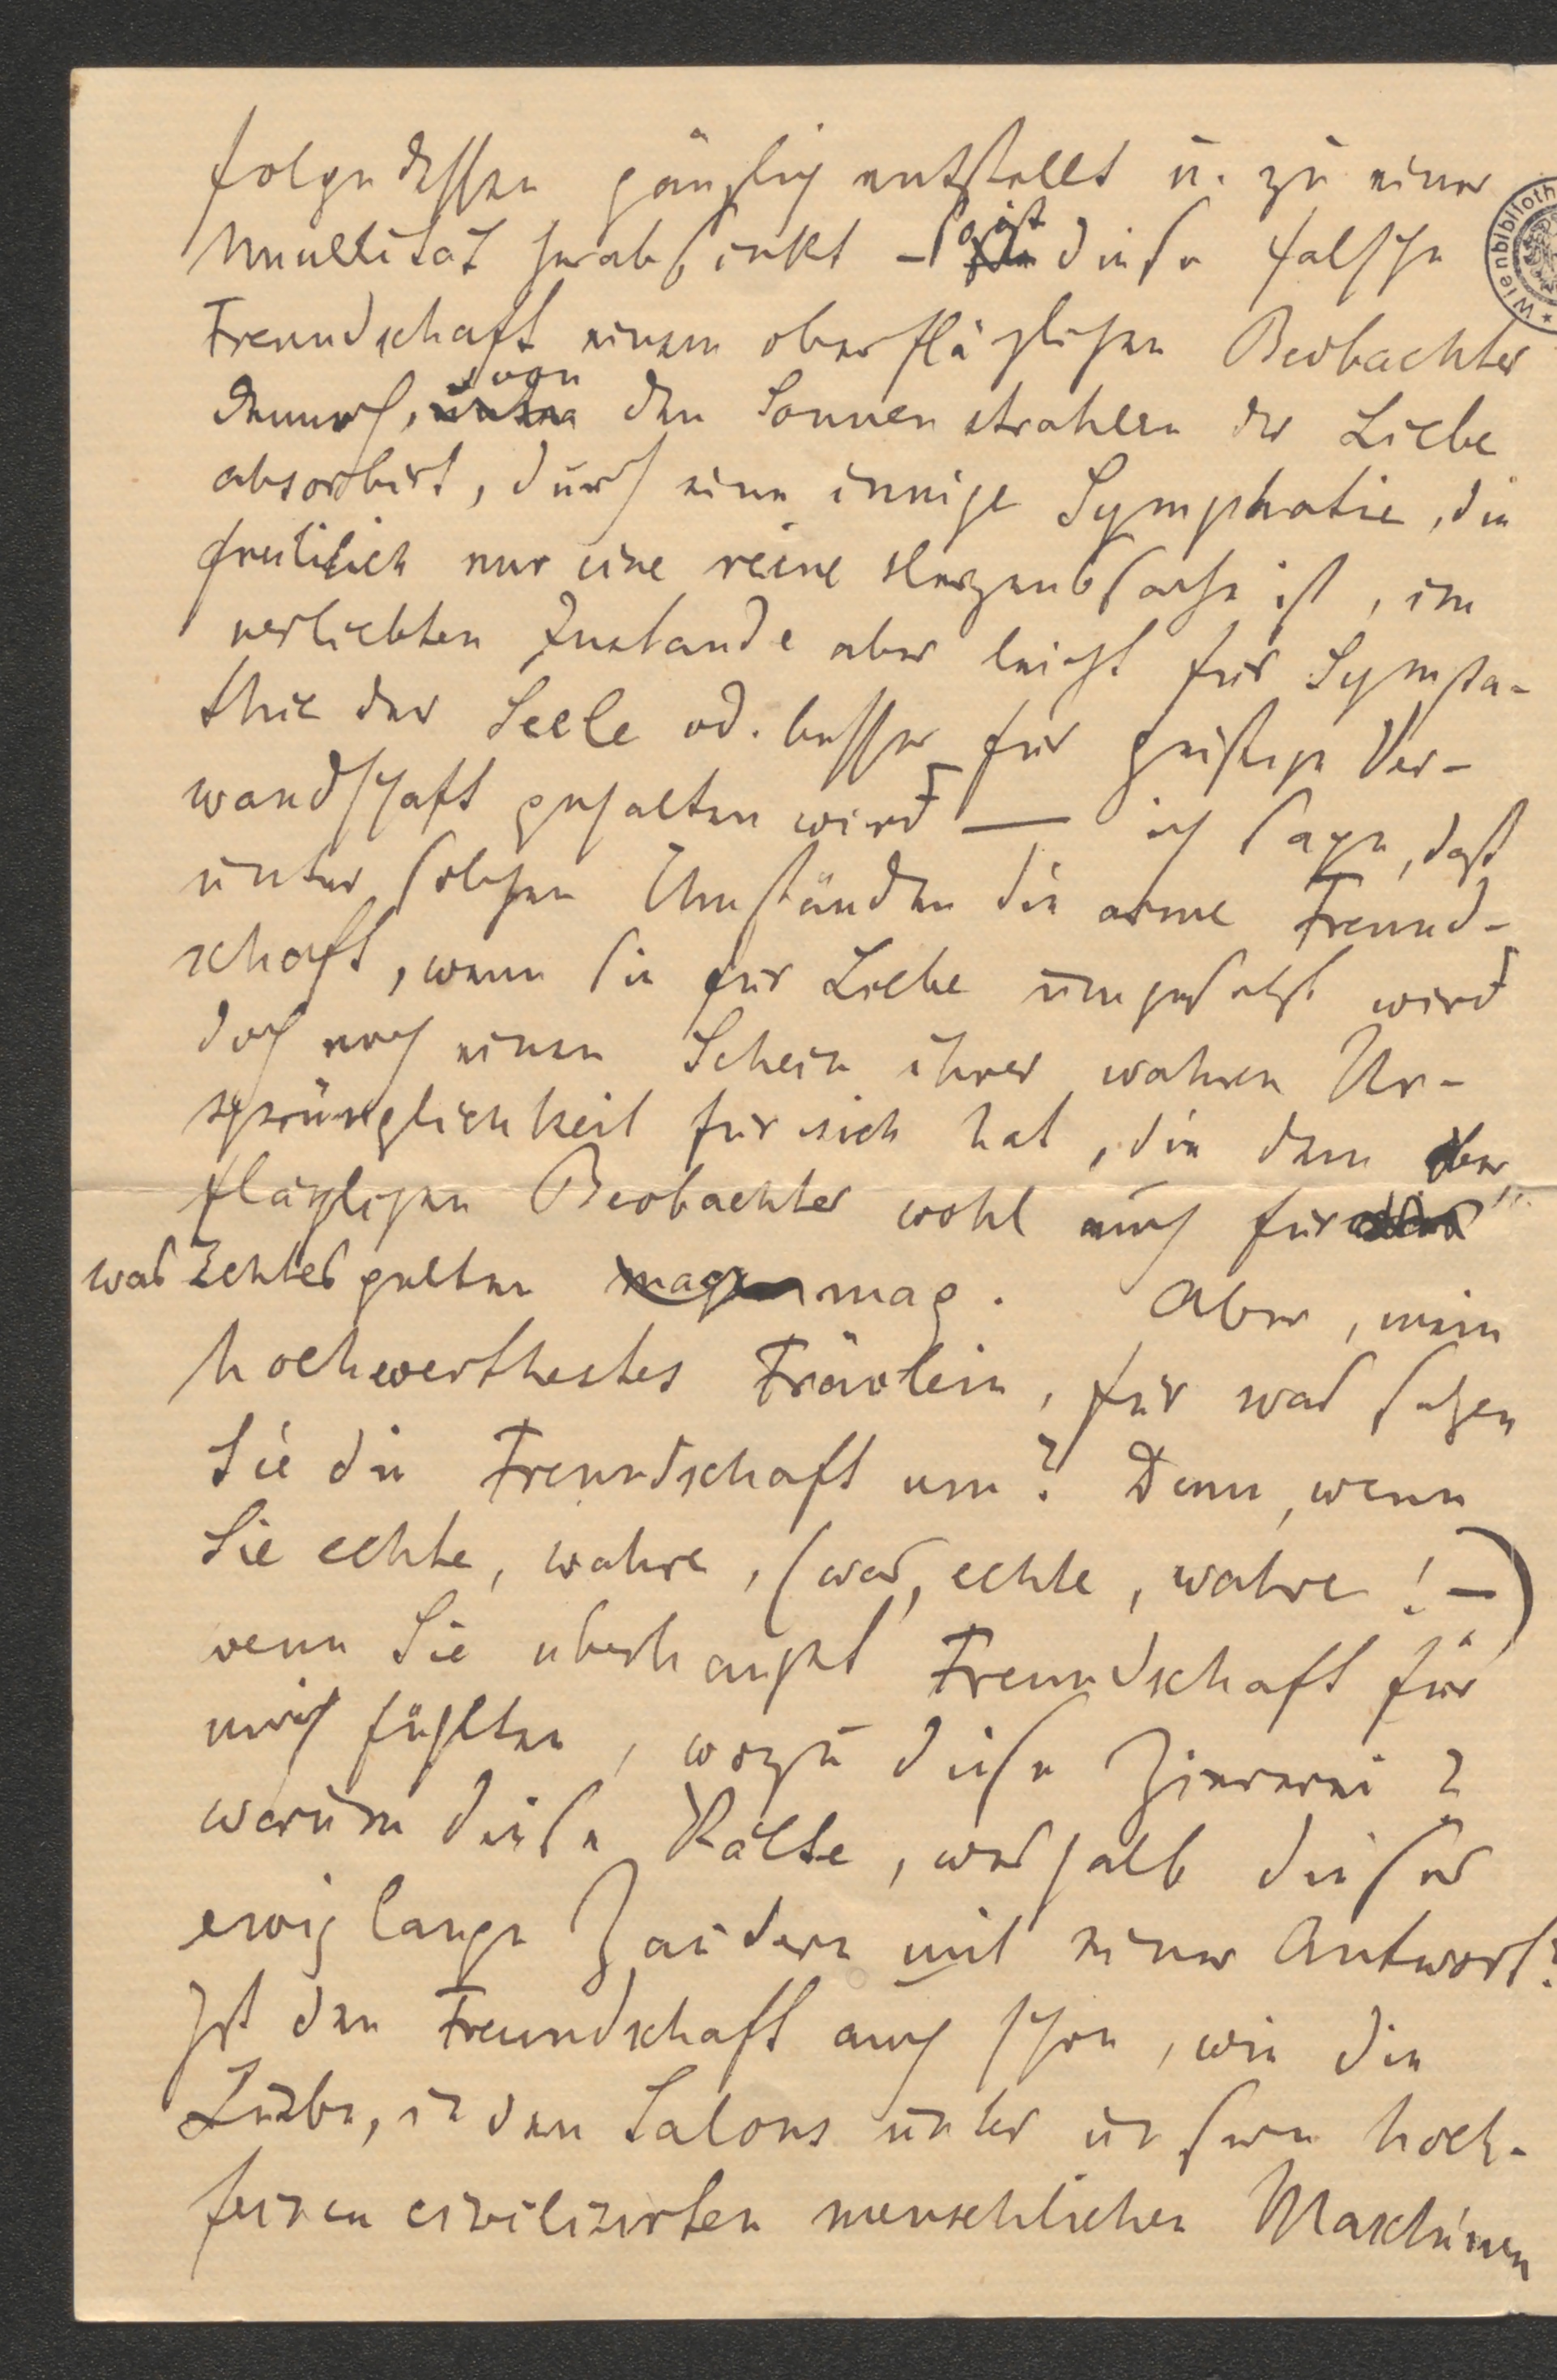 folgedessen gänzlich entstellt u. zu einer
Nnullität herabsinkt – so ist diese falsche
Freundschaft einem oberflächlichen Beobachter
dennoch, von den Sonnenstrahlen der Liebe
absorbirt, durch eine innige Symphatie, die
freilich nur eine reine Herzenssache ist, im
verliebten Zustande aber leicht für Sympa-
thie der Seele od. besser für geistige Ver-
wandschaft gehalten wird — ich sage, daß
unter solchen Umständen die arme Freund-
schaft, wenn sie für Liebe umgesetzt wird
doch noch einen Schein ihrer wahren Ur-
sprünglichkeit für sich hat, die dem ober-
flächlichen Beobachter wohl auch für
was Echtes gelten mag. Aber, mein
hochwerthestes Fräulein, für was setzen
Sie die Freundschaft um? Denn, wenn
Sie echte, wahre, (was, echte, wahre! –)
wenn Sie überhaupt Freundschaft für
mich fühlten, wozu diese Ziererei?
warum diese Kälte, weshalb dieses
ewig lange Zaudern mit einer Antwort?
Ist den Freundschaft auch schon, wie die
Liebe, in den Salons unter unsern hoch-
feinen civilisirten menschlichen Maschinen
Wienbibliothek